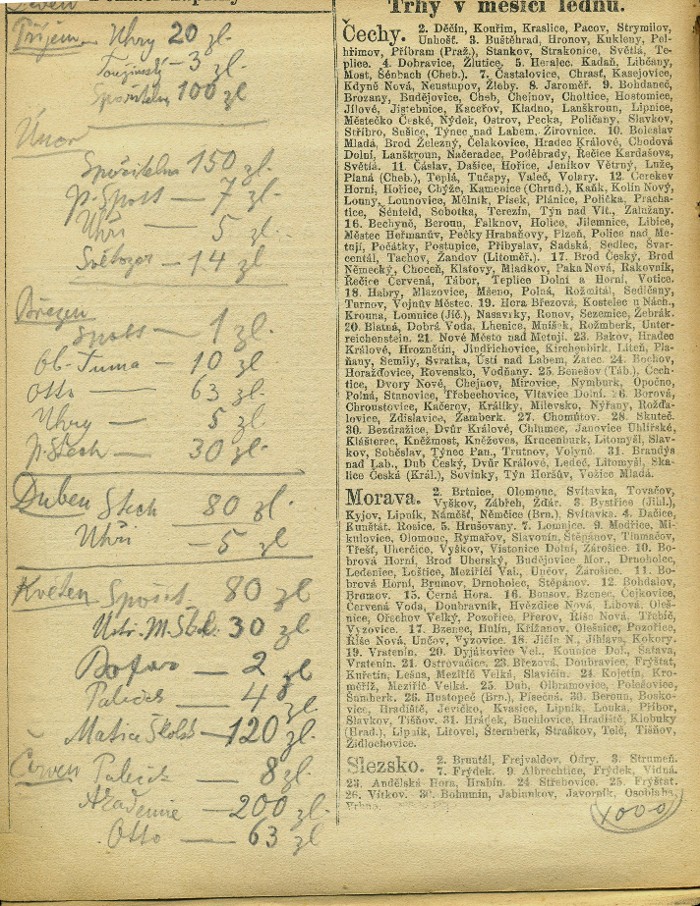 Trhy v měsíci lednu.
Příjem Uhry 20 zl.
— 3 zl.
Spořitelna 100 zl
Únor
Spořitelna 150 zl.
p. Spott — 7 zl.
Uhři — 5 zl.
Světozor — 14 zl
Březen
Spott — 1 zl.
Ob. Tuma — 10 zl
Otto — 63 zl.
Uhry — 5 zl
p. Stech — 30 zl.
Duben Stech 80 zl
Uhři — 5 zl
Květen 80 zl
30 zl
— 2 zl
— 4 zl.
Matice Školsk — 120 zl.
Červen — 8 zl.
— 200 zl.
Otto — 63 zl
Čechy. 2. Děčín, Kouřim, Kraslice, Pacov, Strymilov,
Unhošť. 3. Buštěhrad, Hronov, Kukleny, Pel-
hřimov, Příbram (Praž.), Stankov, Strakonice, Světlá, Te-
plice. 4. Dobravice, Žlutice. 5. Heralec, Kadaň, Libčany,
Most, Šénbach (Cheb.). 7. Častalovice, Chrast, Kasejovice,
Kdyně Nová, Neustupov, Žleby. 8. Jaroměř. 9. Bohdaneč,
Brozany, Budějovice, Cheb, Chejnov, Choltice, Hostomice,
Jílové, Jistebnice, Kaceřov, Kladno, Lanškroun, Lipnice,
Městečko České, Nýdek, Ostrov, Pecka, Poličany, Slavkov,
Stříbro, Sušice, Týnec nad Labem, Žirovnice. 10. Boleslav
Mladá, Brod Železný, Čelakovice, Hradec Králové, Chodová
Dolní, Lanškroun, Načeradec, Poděbrady, Řečice Kardašova,
Světlá. 11. Čáslav, Dašice, Hořice, Jeníkov Větrný, Luže,
Planá (Cheb.), Teplá, Tučapy, Valeč, Volary. 12. Cerekev
Horní, Hořice, Chýže, Kamenice (Chrud.), Kaňk, Kolín Nový,
Louny, Lounovice, Mělník, Písek, Plánice, Polička, Pracha-
tice, Šénfeld, Sobotka, Terezín, Týn nad Vlt., Zalužany.
16. Bechyně, Beroun, Falknov, Holice, Jilemnice, Libice,
Městec Heřmanův, Pečky Hrabaňovy, Plzeň, Police nad Me-
tují, Počátky, Postupice, Přibyslav, Sadská, Sedlec, Švar-
centál, Tachov, Žandov (Litoměř.). 17. Brod Český, Brod
Německý, Choceň, Klatovy, Mladkov, Paka Nová, Rakovník,
Řečice Červená, Tábor, Teplice Dolní a Horní, Votice.
18. Habry, Mlazovice, Mšeno, Polná, Rožmitál, Sedlčany,
Turnov, Vojnův Městec. 19. Hora Březová, Kostelec u Nách.,
Krouna, Lomnice (Jič.), Nasavrky, Ronov, Sezemice, Žebrák.
20. Blatná, Dobrá Voda, Lhenice, Mníšek, Rožmberk, Unter-
reichenstein. 21. Nové Město nad Metují. 23. Bakov, Hradec
Králové, Hroznětín, Jindřichovice, Kirchenbirk, Liteň, Pla-
ňany, Semily, Svratka, Ústí nad Labem, Žatec. 24. Bochov,
Horažďovice, Rovensko, Vodňany. 25. Benešov (Táb.), Čech-
tice, Dvory Nové, Chejnov, Mirovice, Nymburk, Opočno,
Polná, Stanovice, Třebechovice, Vltavice Dolní. 26. Borová,
Chroustovice, Kačerov, Králíky, Milevsko, Nýřany, Rožďa-
lovice, Zdislavice, Žamberk. 27. Chomútov. 28. Skuteč.
30. Bezdražice, Dvůr Králové, Chlumec, Janovice Uhlířské,
Klášterec, Kněžmost, Kněževes, Krucenburk, Litomyšl, Slav-
kov, Soběslav, Týnec Pan., Trutnov, Volyně. 31. Brandýs
nad Lab., Dub Český, Dvůr Králové, Ledeč, Litomyšl, Ska-
lice Česká (Král.), Sovinky, Týn Horšův, Vožice Mladá.
Morava. 2. Brtnice, Olomouc, Svítavka, Tovačov,
Vyškov, Zábřeh, Žďár. 3. Bystřice (Jihl.),
Kyjov, Lipník, Náměšť, Němčice (Brn.), Svítavka. 4. Dačice,
Kunštát, Rosice. 5. Hrušovany. 7. Lomnice. 9. Modřice, Mi-
kulovice, Olomouc, Rymařov, Slavonín, Štěpánov, Tlumačov,
Třešť, Uherčice, Vyškov, Vistonice Dolní, Zárošice. 10. Bo-
brová Horní, Brod Uherský, Budějovice Mor., Drnholec,
Ledenice, Loštice, Meziříčí Val., Unčov, Žárošice. 11. Bo-
brová Horní, Brumov, Drnholec, Štěpánov. 12. Bohdalov,
Brumov. 15. Černá Hora. 16. Bousov, Bzenec, Cejkovice,
Červená Voda, Doubravník, Hvězdlice Nová, Libová, Oleš-
nice, Ořechov Velký, Pozořice, Přerov, Říše Nová, Třebíč,
Vyzovice. 17. Bzenec, Hulín, Křižanov, Olešnice, Pozořice,
Říše Nová, Unčov, Vyzovice. 18. Jičín N., Jihlava, Kokory.
19. Vratenín. 20. Dyjákovice Vel., Kounice Dol., Šatava,
Vratenín. 21. Ostrovačice. 23. Březová, Doubravice, Frýštát,
Kuřetín, Lesna, Meziříč Velká, Slavičín. 24. Kojetín, Kro-
měříž, Meziříč Velká. 25. Dub, Olbramovice, Polešovice,
Šumberk. 26. Hustopeč (Brn.), Písečná. 30. Beroun, Bosko-
vice, Hradiště, Jevíčko, Kvasice, Lipník, Louka, Příbor,
Slavkov, Tišňov. 31. Hrádek, Buchlovice, Hradiště, Klobuky
(Hrad.), Lipník, Litovel, Šternberk, Straškov, Telč, Tišňov,
Židlochovice.
Slezsko. 2. Bruntál, Frejvaldov, Odry. 3. Strumeň.
7. Frýdek. 9. Albrechtice, Frýdek, Vidná.
23. Andělská Hora, Hrabín. 24. Štěbovice. 25. Fryštát.
26. Vítkov. 30. Bohumín, Jablunkov, Javorník, Osoblaha,
1000